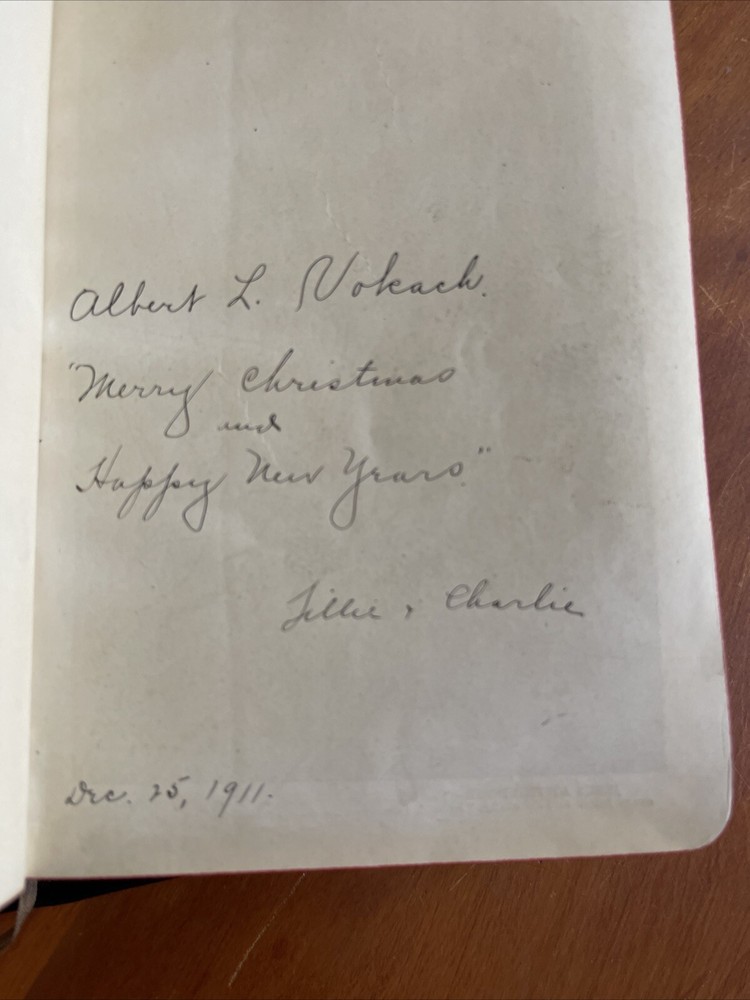 Albert L. Vokach.
"Merry Christmas
and
Happy New Years"
Lillie & Charlie
Dec. 25, 1911.